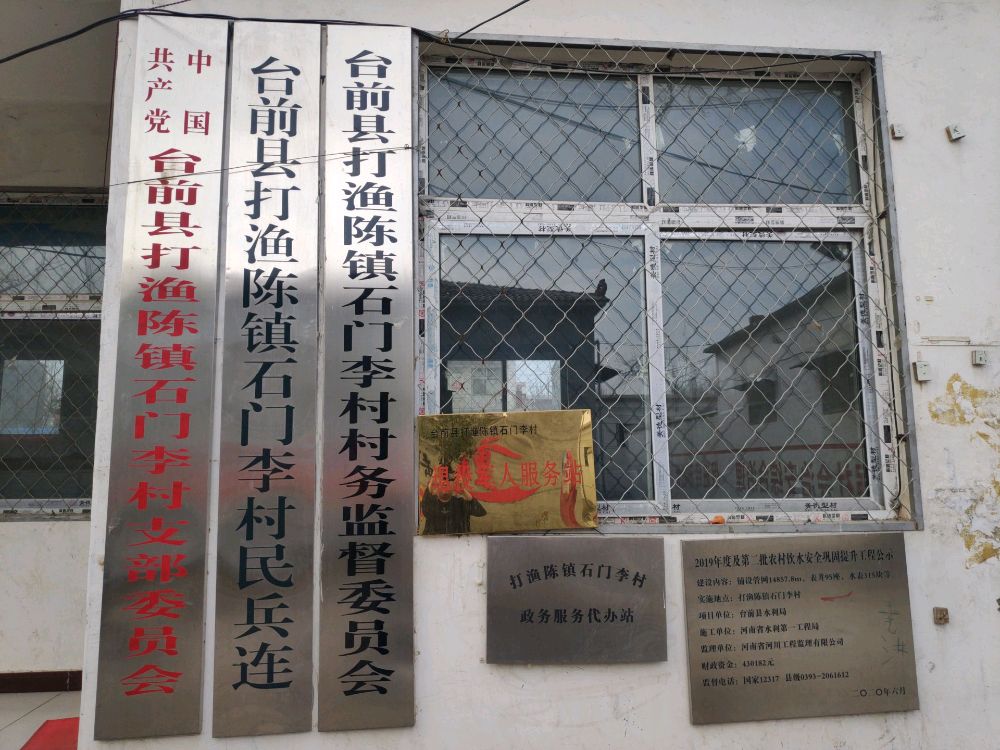 中国
共产党
台前县打渔陈镇石门李村支部委员会
台前县打渔陈镇石门李村民兵连
台前县打渔陈镇石门李村村务监督委员会
台前县打渔陈镇石门李村
人服务站
打渔陈镇石门李村
政务服务代办站
2019年度及第二批农村饮水安全巩固提升工程公示
建设内容：铺设管网14857.8m，表井95座，水表315块等
实施地点：打渔陈镇石门李村
项目单位：台前县水利局
施工单位：河南省水利第一工程局
监理单位：河南省河川工程监理有限公司
财政资金：430182元
监督电话：国家12317 县级0393-2061612
二〇二〇年六月